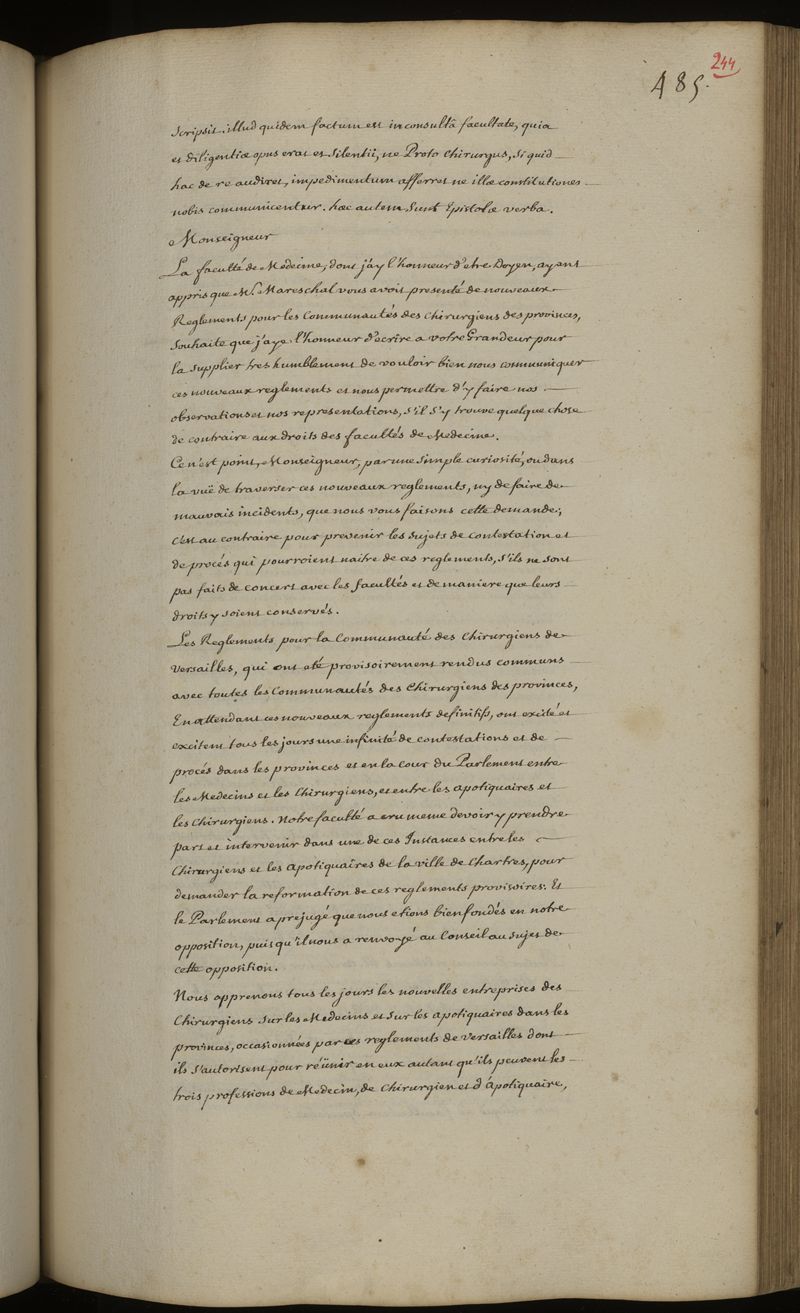 244
485.
scripsit. illud quidem factum est inconsultâ facultate, quia
et diligentiæ opus erat et silentii, ne Proto Chirurgus, si quid
hac de re audiret, impedimentum afferret ne illæ constitutiones
nobis communicentur. hæc autem sunt Epistolæ verba.
Monseigneur
La faculté de Medecine, dont j'ay l'honneur d'etre Doyen, ayant
appris que Mr. Mareschal vous avoit presenté de nouveaux
Reglements pour les Communautés des Chirurgiens des provinces,
souhaite que j'aye l'honneur d'ecrire a votre Grandeur pour
la supplier tres humblement de vouloir bien nous communiquer
ces nouveaux reglements et nous permettre d'y faire nos
observations et nos representations, s'il s'y trouve quelque chose
de contraire aux droits des facultés de Medecine.
Ce n'est point, Monseigneur, par une simple curiosité, ou dans
la vuë de traverser ces nouveaux reglements, ny de faire de
mauvais incidents, que nous vous faisons cette demande;
c'est au contraire pour prevenir les sujets de contestation et
de procés qui pourroient naitre de ces reglements, s'ils ne sont
pas faits de concert avec les facultés et de maniere que leurs
droits y soient conservés.
Les Reglements pour la Communauté des Chirurgiens de
Versailles, qui ont eté provisoirement rendus communs
avec toutes les Communautés des Chirurgiens des provinces,
En attendant ces nouveaux reglements definitifs, ont excité et
excitent tous les jours une infinité de contestations et de
procés dans les provinces et en la Cour du Parlement entre
les Medecins et les Chirurgiens, et entre les apotiquaires et
les Chirurgiens. Notre faculté a cru meme devoir y prendre
part et intervenir dans une de ces Instances entre les
Chirurgiens et les Apotiquaires de la ville de Chartres, pour
demander la reformation de ces reglements provisoires. Et
le Parlement a prejugé que nous etions bien fondés en notre
opposition, puisqu'il nous a renvoyé au Conseil au sujet de
cette opposition.
Nous apprenons tous les jours les nouvelles entreprises des
Chirurgiens sur les Medecins et sur les apotiquaires dans les
provinces, occasionnées par ces reglements de Versailles dont
ils s'autorisent pour réünir en eux autant qu'ils peuvent les
trois professions de Medecin, de Chirurgien et d'Apotiquaire,